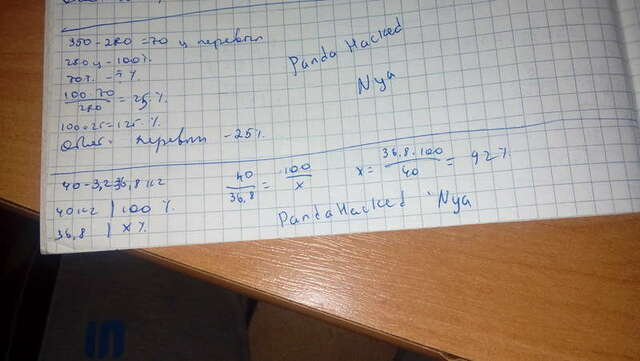 350 - 280 = 70 ц перевып
280 ц - 100%
70 ц - ? %
100·70 / 280 = 25%
100+25=125%
Ответ: перевып - 25%
Panda Hacked
Nya
40-3,2=36,8 кг
40 кг | 100 %
36,8 | x %
40 / 36,8 = 100 / x
x = 36,8·100 / 40 = 92%
PandaHacked Nya